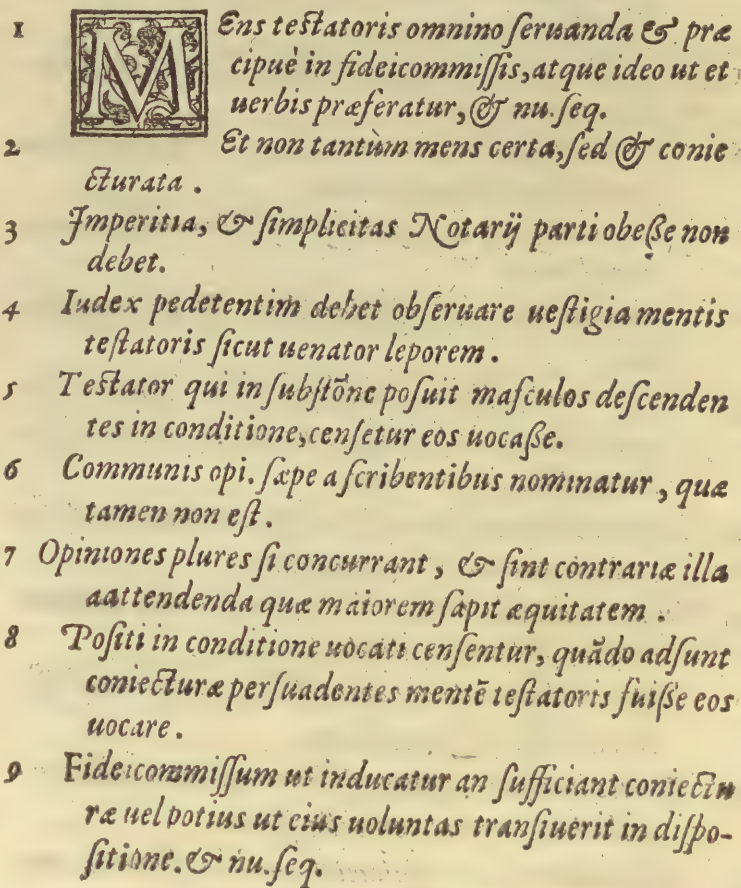 1 MEns testatoris omnino seruanda & præ
cipuè in fideicommissis, atque ideo ut et
uerbis præferatur, & nu. seq.
2 Et non tantùm mens certa, sed & conie
cturata.
3 Imperitia, & simplicitas Notarij parti obesse non
debet.
4 Iudex pedetentim debet obseruare uestigia mentis
testatoris sicut uenator leporem.
5 Testator qui in substõne posuit masculos descenden
tes in conditione, censetur eos uocasse.
6 Communis opi. sæpe a scribentibus nominatur, quæ
tamen non est.
7 Opiniones plures si concurrant, & sint contrariæ illa
aattendenda quæ maiorem sapit æquitatem.
8 Positi in conditione uocati censentur, quãdo adsunt
coniecturæ persuadentes mentẽ testatoris fuisse eos
uocare.
9 Fideicommissum ut inducatur an sufficiant coniectu
ræ uel potius ut eius uoluntas transiuerit in dispo-
sitione. & nu. seq.